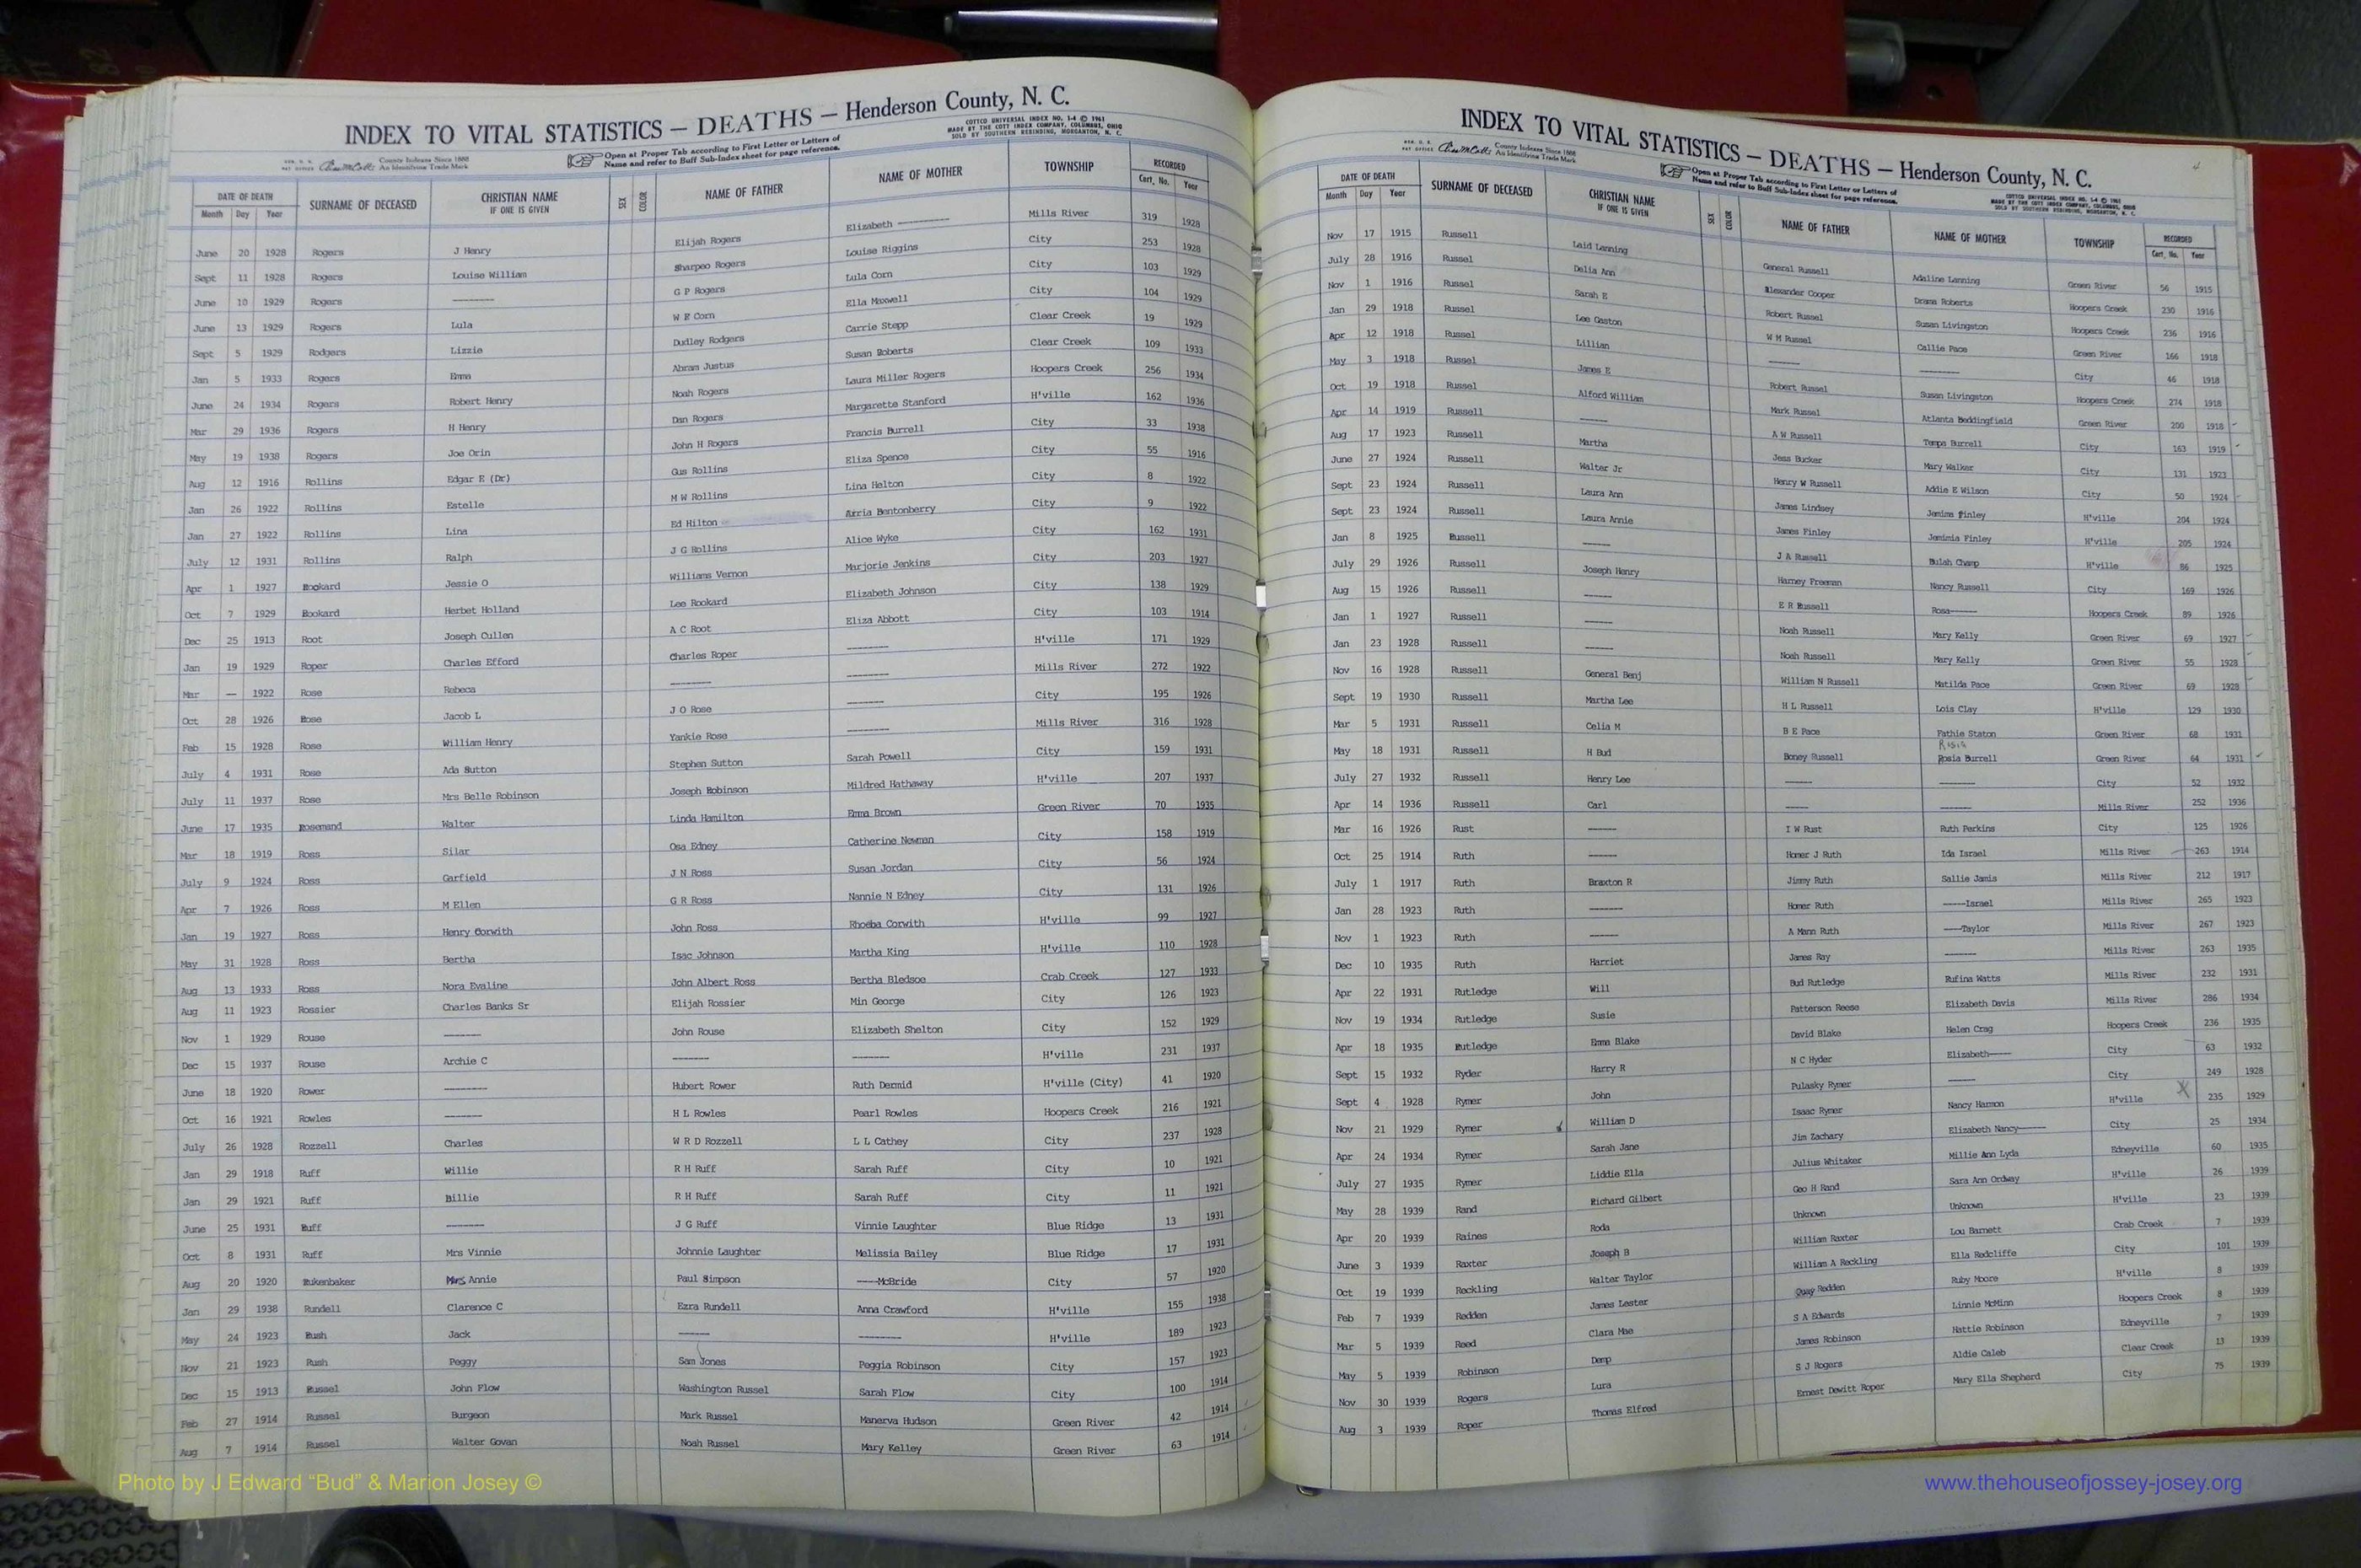 INDEX TO VITAL STATISTICS — DEATHS — Henderson County, N. C.
COTTCO UNIVERSAL INDEX NO. 1-4 © 1961
MADE BY THE COTT INDEX COMPANY, COLUMBUS, OHIO
SOLD BY SOUTHERN REBINDING, MORGANTON, N. C.
County Indexes Since 1888
An Identifying Trade Mark
Open at Proper Tab according to First Letter or Letters of
Name and refer to Buff Sub-Index sheet for page reference.
DATE OF DEATH SURNAME OF DECEASED CHRISTIAN NAME IF ONE IS GIVEN SEX COLOR NAME OF FATHER NAME OF MOTHER TOWNSHIP RECORDED
Month Day Year Cert. No. Year
June 20 1928 Rogers J Henry Elijah Rogers Elizabeth -------- Mills River 319 1928
Sept 11 1928 Rogers Louise William Sharpeo Rogers Louise Riggins City 253 1928
June 10 1929 Rogers -------- G P Rogers Lula Corn City 103 1929
June 13 1929 Rogers Lula W E Corn Ella Maxwell City 104 1929
Sept 5 1929 Rodgers Lizzie Dudley Rodgers Carrie Stepp Clear Creek 19 1929
Jan 5 1933 Rogers Emma Abram Justus Susan Roberts Clear Creek 109 1933
June 24 1934 Rogers Robert Henry Noah Rogers Laura Miller Rogers Hoopers Creek 256 1934
Mar 29 1936 Rogers H Henry Dan Rogers Margarette Stanford H'ville 162 1936
May 19 1938 Rogers Joe Orin John H Rogers Francis Burrell City 33 1938
Aug 12 1916 Rollins Edgar E (Dr) Gus Rollins Eliza Spence City 55 1916
Jan 26 1922 Rollins Estelle M W Rollins Lina Helton City 8 1922
Jan 27 1922 Rollins Lina Ed Hilton Arria Bentonberry City 9 1922
July 12 1931 Rollins Ralph J G Rollins Alice Wyke City 162 1931
Apr 1 1927 Rookard Jessie O Williams Vernon Marjorie Jenkins City 203 1927
Oct 7 1929 Rookard Herbet Holland Lee Rookard Elizabeth Johnson City 138 1929
Dec 25 1913 Root Joseph Cullen A C Root Eliza Abbott City 103 1914
Jan 19 1929 Roper Charles Efford Charles Roper -------- H'ville 171 1929
Mar — 1922 Rose Rebeca -------- -------- Mills River 272 1922
Oct 28 1926 Rose Jacob L J O Rose -------- City 195 1926
Feb 15 1928 Rose William Henry Yankie Rose -------- Mills River 316 1928
July 4 1931 Rose Ada Sutton Stephen Sutton Sarah Powell City 159 1931
July 11 1937 Rose Mrs Belle Robinson Joseph Robinson Mildred Hathaway H'ville 207 1937
June 17 1935 Rosemand Walter Linda Hamilton Emma Brown Green River 70 1935
Mar 18 1919 Ross Silar Osa Edney Catherine Newman City 158 1919
July 9 1924 Ross Garfield J N Ross Susan Jordan City 56 1924
Apr 7 1926 Ross M Ellen G R Ross Nannie N Edney City 131 1926
Jan 19 1927 Ross Henry Corwith John Ross Rhoeba Corwith H'ville 99 1927
May 31 1928 Ross Bertha Isac Johnson Martha King H'ville 110 1928
Aug 13 1933 Ross Nora Evaline John Albert Ross Bertha Bledsoe Crab Creek 127 1933
Aug 11 1923 Rossier Charles Banks Sr Elijah Rossier Min George City 126 1923
Nov 1 1929 Rouse ------- John Rouse Elizabeth Shelton City 152 1929
Dec 15 1937 Rouse Archie C ------- ------- H'ville 231 1937
June 18 1920 Rower -------- Hubert Rower Ruth Dermid H'ville (City) 41 1920
Oct 16 1921 Rowles ------- H L Rowles Pearl Rowles Hoopers Creek 216 1921
July 26 1928 Rozzell Charles W R D Rozzell L L Cathey City 237 1928
Jan 29 1918 Ruff Willie R H Ruff Sarah Ruff City 10 1921
Jan 29 1921 Ruff Billie R H Ruff Sarah Ruff City 11 1921
June 25 1931 Ruff ------- J G Ruff Vinnie Laughter Blue Ridge 13 1931
Oct 8 1931 Ruff Mrs Vinnie Johnnie Laughter Melissia Bailey Blue Ridge 17 1931
Aug 20 1920 Rukenbaker Mrs Annie Paul Simpson ----McBride City 57 1920
Jan 29 1938 Rundell Clarence C Ezra Rundell Anna Crawford H'ville 155 1938
May 24 1923 Rush Jack ------ -------- H'ville 189 1923
Nov 21 1923 Rush Peggy Sam Jones Peggia Robinson City 157 1923
Dec 15 1913 Russel John Flow Washington Russel Sarah Flow City 100 1914
Feb 27 1914 Russel Burgeon Mark Russel Manerva Hudson Green River 42 1914
Aug 7 1914 Russel Walter Govan Noah Russel Mary Kelley Green River 63 1914
INDEX TO VITAL STATISTICS — DEATHS — Henderson County, N. C.
County Indexes Since 1888
An Identifying Trade Mark
Open at Proper Tab according to First Letter or Letters of
Name and refer to Buff Sub-Index sheet for page reference.
COTTCO UNIVERSAL INDEX NO. 1-4 © 1961
MADE BY THE COTT INDEX COMPANY, COLUMBUS, OHIO
SOLD BY SOUTHERN REBINDING, MORGANTON, N. C.
DATE OF DEATH SURNAME OF DECEASED CHRISTIAN NAME IF ONE IS GIVEN SEX COLOR NAME OF FATHER NAME OF MOTHER TOWNSHIP RECORDED
Month Day Year Cert. No. Year
Nov 17 1915 Russell Laid Lanning General Russell Adaline Lanning Green River 56 1915
July 28 1916 Russel Delia Ann Alexander Cooper Drama Roberts Hoopers Creek 230 1916
Nov 1 1916 Russel Sarah E Robert Russel Susan Livingston Hoopers Creek 236 1916
Jan 29 1918 Russel Lee Gaston W M Russel Callie Pace Green River 166 1918
Apr 12 1918 Russel Lillian ------ -------- City 46 1918
May 3 1918 Russel James E Robert Russel Susan Livingston Hoopers Creek 274 1918
Oct 19 1918 Russel Alford William Mark Russel Atlanta Beddingfield Green River 200 1918
Apr 14 1919 Russell ------ A W Russell Tempa Burrell City 163 1919
Aug 17 1923 Russell Martha Jess Bucker Mary Walker City 131 1923
June 27 1924 Russell Walter Jr Henry W Russell Addie E Wilson City 50 1924
Sept 23 1924 Russell Laura Ann James Lindsey Jemima Finley H'ville 204 1924
Sept 23 1924 Russell Laura Annie James Finley Jemimia Finley H'ville 205 1924
Jan 8 1925 Russell ------ J A Russell Bulah Champ H'ville 86 1925
July 29 1926 Russell Joseph Henry Harney Freeman Nancy Russell City 169 1926
Aug 15 1926 Russell ------ E R Russell Rosa----- Hoopers Creek 89 1926
Jan 1 1927 Russell ------ Noah Russell Mary Kelly Green River 69 1927
Jan 23 1928 Russell ------ Noah Russell Mary Kelly Green River 55 1928
Nov 16 1928 Russell General Benj William N Russell Matilda Pace Green River 69 1928
Sept 19 1930 Russell Martha Lee H L Russell Lois Clay H'ville 129 1930
Mar 5 1931 Russell Celia M B E Pace Fathie Staton Green River 68 1931
Rosia
May 18 1931 Russell H Bud Boney Russell Rosia Burrell Green River 64 1931
July 27 1932 Russell Henry Lee ----- ------ City 52 1932
Apr 14 1936 Russell Carl ----- ------ Mills River 252 1936
Mar 16 1926 Rust ------ I W Rust Ruth Perkins City 125 1926
Oct 25 1914 Ruth ------ Homer J Ruth Ida Israel Mills River 263 1914
July 1 1917 Ruth Braxton R Jimmy Ruth Sallie Jamis Mills River 212 1917
Jan 28 1923 Ruth ------- Homer Ruth -----Israel Mills River 265 1923
Nov 1 1923 Ruth ------ A Mann Ruth ----Taylor Mills River 267 1923
Dec 10 1935 Ruth Harriet James Ray ------- Mills River 263 1935
Apr 22 1931 Rutledge Will Bud Rutledge Rufina Watts Mills River 232 1931
Nov 19 1934 Rutledge Susie Patterson Reese Elizabeth Davis Mills River 286 1934
Apr 18 1935 Rutledge Emma Blake David Blake Helen Crag Hoopers Creek 236 1935
Sept 15 1932 Ryder Harry R N C Hyder Elizabeth----- City 63 1932
Sept 4 1928 Rymer John Pulasky Rymer ------ City 249 1928
Nov 21 1929 Rymer William D Isaac Rymer Nancy Harmon H'ville X 235 1929
Apr 24 1934 Rymer Sarah Jane Jim Zachary Elizabeth Nancy----- City 25 1934
July 27 1935 Rymer Liddie Ella Julius Whitaker Millie Ann Lyda Edneyville 60 1935
May 28 1939 Rand Richard Gilbert Geo H Rand Sara Ann Ordway H'ville 26 1939
Apr 20 1939 Raines Roda Unknown Unknown H'ville 23 1939
June 3 1939 Raxter Joseph B William Raxter Lou Barnett Crab Creek 7 1939
Oct 19 1939 Reckling Walter Taylor William A Reckling Ella Redcliffe City 101 1939
Feb 7 1939 Redden James Lester Quay Redden Ruby Moore H'ville 8 1939
Mar 5 1939 Reed Clara Mae S A Edwards Linnie McMinn Hoopers Creek 8 1939
May 5 1939 Robinson Demp James Robinson Hattie Robinson Edneyville 7 1939
Nov 30 1939 Rogers Lura S J Rogers Aldie Caleb Clear Creek 13 1939
Aug 3 1939 Roper Thomas Elfred Ernest Dewitt Roper Mary Ella Shepherd City 75 1939
Photo by J Edward “Bud” & Marion Josey ©
www.thehouseofjossey-josey.org